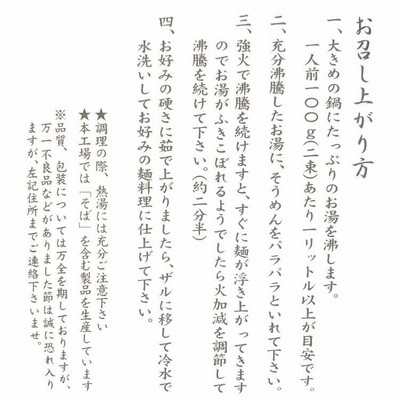 お召し上がり方
一、大きめの鍋にたっぷりのお湯を沸します。
一人前一〇〇g(二束)あたり一リットル以上が目安です。
二、充分沸騰したお湯に、そうめんをパラパラといれて下さい。
三、強火で沸騰を続けますと、すぐに麺が浮き上がってきます
のでお湯がふきこぼれるようでしたら火加減を調節して
沸騰を続けて下さい。(約二分半)
四、お好みの硬さに茹で上がりましたら、ザルに移して冷水で
水洗いしてお好みの麺料理に仕上げて下さい。
★調理の際、熱湯には充分ご注意下さい
★本工場では「そば」を含む製品を生産しています
※品質、包装については万全を期しておりますが、
万一不良品などがありました節は誠に恐れ入り
ますが、左記住所までご連絡下さいませ。